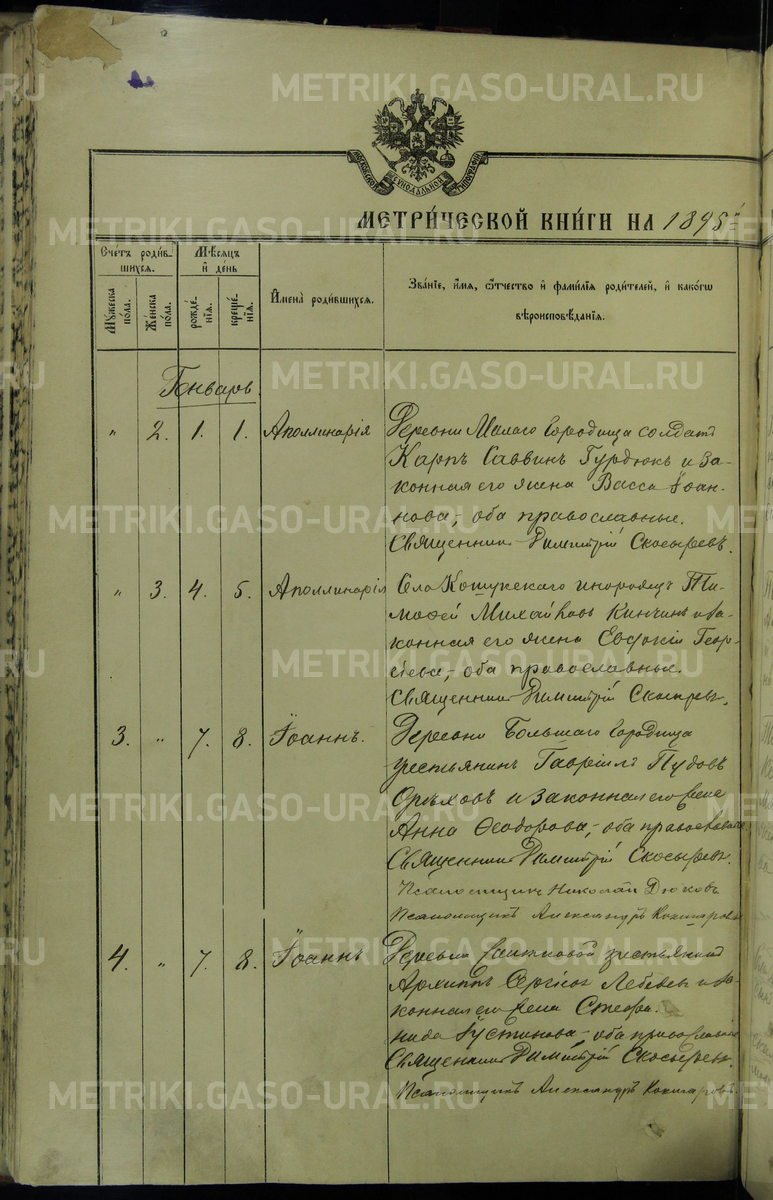 METRIKI.GASO-URAL.RU
МОСКОВСКОЙ СѴНОДАЛЬНОЙ ТИПОГРАФІИ
МЕТРИ́ЧЕСКОЙ КНИ́ГИ НА 1895й
Сче́тъ роди́вшихся.
Мꙋ́жеска по́ла.
Же́нска по́ла.
Мѣ́сяцъ и де́нь
рожде́нія.
креще́нія.
Имена̀ роди́вшихся.
Зва́ніе, и́мя, ѻ҆́тчество и фами́лія роди́телей, и како́гѡ
вѣроисповѣ́данія.
Январь.
" 2. 1. 1. Аполлинарія Деревни Малаго Городища солдатъ
Карпъ Саввинъ Гурдюкъ и за-
конная его жена Васса Іоан-
нова, оба православные.
Священникъ Димитрій Скосыревъ.
" 3. 4. 5. Аполлинарія Села Кошукскаго инородецъ Ти-
моѳей Михайловъ Кинчинъ и за-
конная его жена Евдокія Геор-
гіева, оба православные.
Священникъ Димитрій Скосыревъ.
3. " 7. 8. Іоаннъ. Деревни Большаго Городища
крестьянинъ Гавріилъ Пудовъ
Орѣховъ и законная его жена
Анна Ѳеодорова, оба православные
Священникъ Димитрій Скосыревъ.
Псаломщикъ Николай Дюковъ
Псаломщикъ Александръ Кокшаровъ
4. " 7. 8. Іоаннъ Деревни крестьянинъ
Архиппъ Сергіевъ Лебедевъ и за-
конная его жена Стефа-
нида Іустинова, оба православные
Священникъ Димитрій Скосыревъ.
Псаломщикъ Александръ Кокшаровъ.